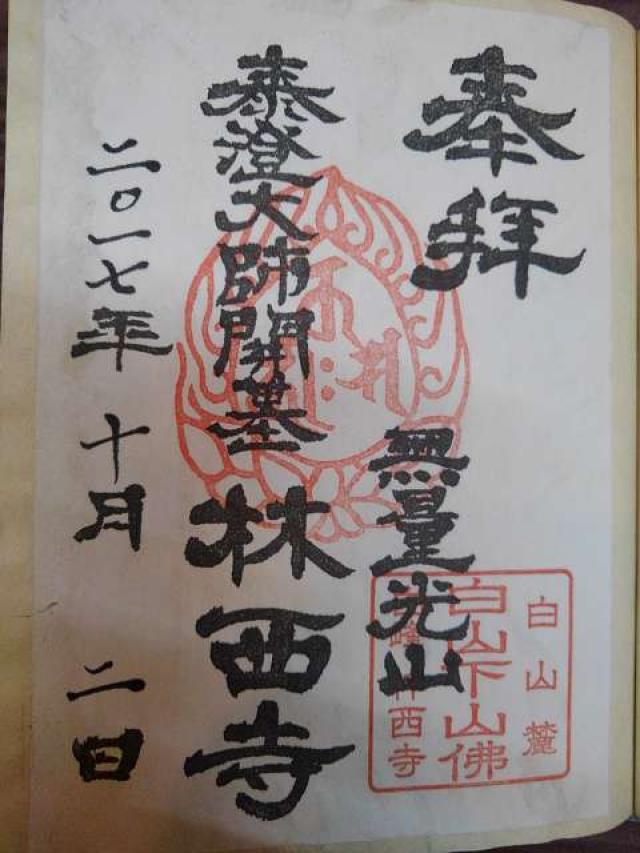 奉拝
無量光山
泰澄大師開基 林西寺
二〇一七年 十月 二日
白山麓
白山下山佛
白峰 林西寺